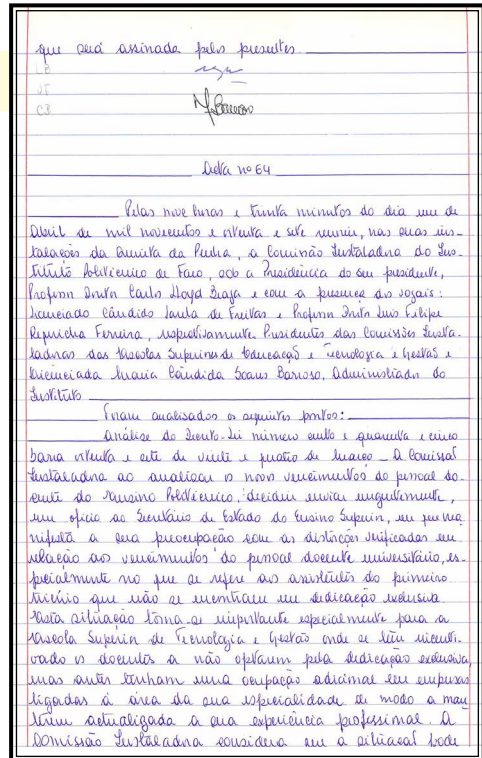 que será assinada pelos presentes.
LB
CB
Acta nº 64
Pelas nove horas e trinta minutos do dia um de
Abril de mil novecentos e oitenta e sete reuniu, nas suas ins-
talações da Quinta da Penha, a Comissão Instaladora do Ins-
tituto Politécnico de Faro, sob a Presidência do seu presidente,
Professor Doutor Carlos Lloyd Braga e com a presença dos vogais:
Licenciado Cândido Paula de Freitas e Professor Doutor Luis Filipe
Requicha Ferreira, respectivamente Presidentes das Comissões Insta-
ladoras das Escolas Superiores de Educação e Tecnologia e Gestão e
Licenciada Maria Cândida Soares Barroso, Administrador do
Instituto
Foram analisados os seguintes pontos:
Análise do Decreto-Lei número cento e quarenta e cinco
barra oitenta e sete de vinte e quatro de Março - A Comissão
Instaladora ao analisar os novos vencimentos do pessoal do-
cente do Ensino Politécnico, decidiu enviar urgentemente,
um ofício ao Secretário de Estado do Ensino Superior, em que ma
nifesta a sua preocupação com as distinções verificadas em
relação aos vencimentos do pessoal docente universitário, es-
pecialmente no que se refere aos assistentes do primeiro
triénio que não se encontram em dedicação exclusiva
Esta situação torna-se importante especialmente para a
Escola Superior de Tecnologia e Gestão onde se têm incenti-
vado os docentes a não optarem pela dedicação exclusiva,
mas antes tenham uma ocupação adicional em empresas
ligadas à área da sua especialidade de modo a man
terem actualizada a sua experiência profissional. A
Comissão Instaladora considera que a situação pode